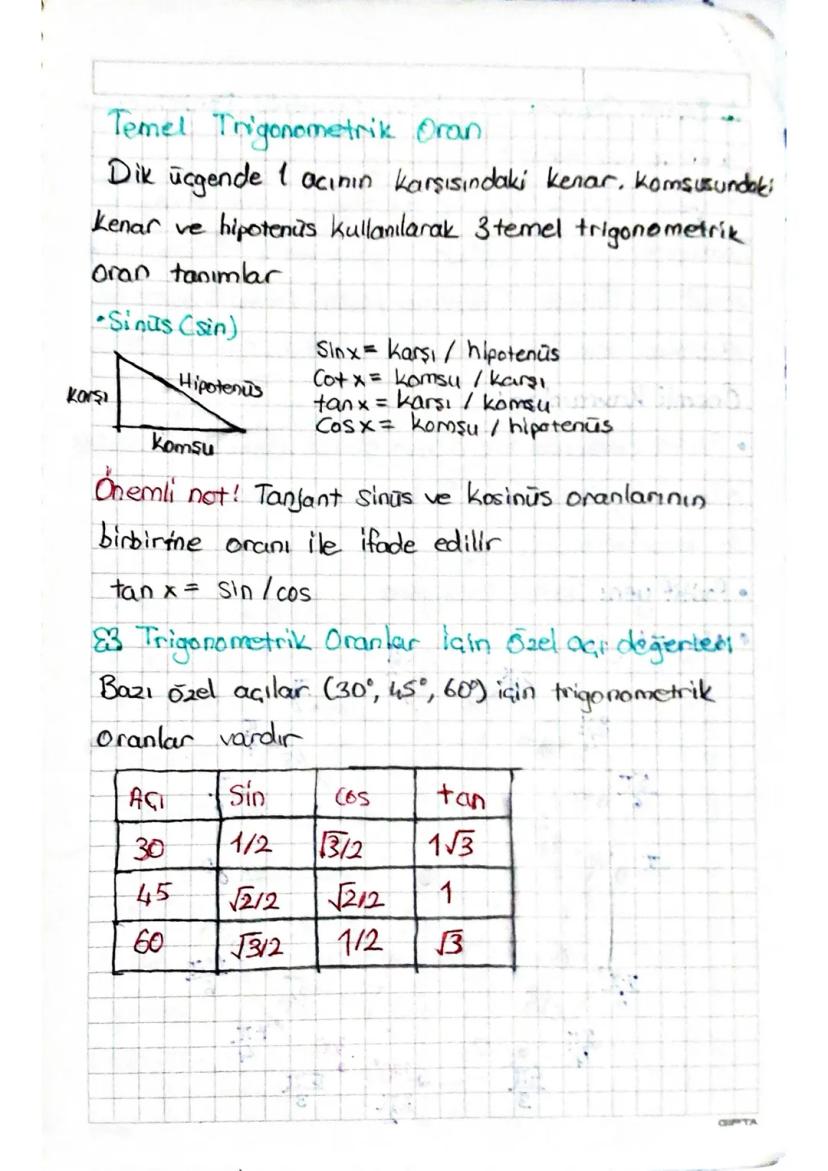 Temel Trigonometrik Oran
Dik üçgende 1 acının karşısındaki kenar, komsusundaki
kenar ve hipotenüs kullanılarak 3 temel trigonometrik
oran tanımlar
• Sinüs (sin)
Sinx = karşı / hipotenüs
Cot x = komsu / karşı
tan x = karşı / komsu
Cos x = komşu / hipotenüs
Karşı
Hipotenüs
Komşu
Önemli not! Tanjant sinüs ve kosinüs oranlarının
birbirine oranı ile ifade edilir
tan x = sin / cos
Trigonometrik Oranlar için özel açı değerleri
Bazı özel açılar (30°, 45°, 60°) için trigonometrik
oranlar vardır
Açı Sin cos tan
30 1/2 √3/2 1√3
45 √2/2 √2/2 1
60 √3/2 1/2 √3
GIPTA